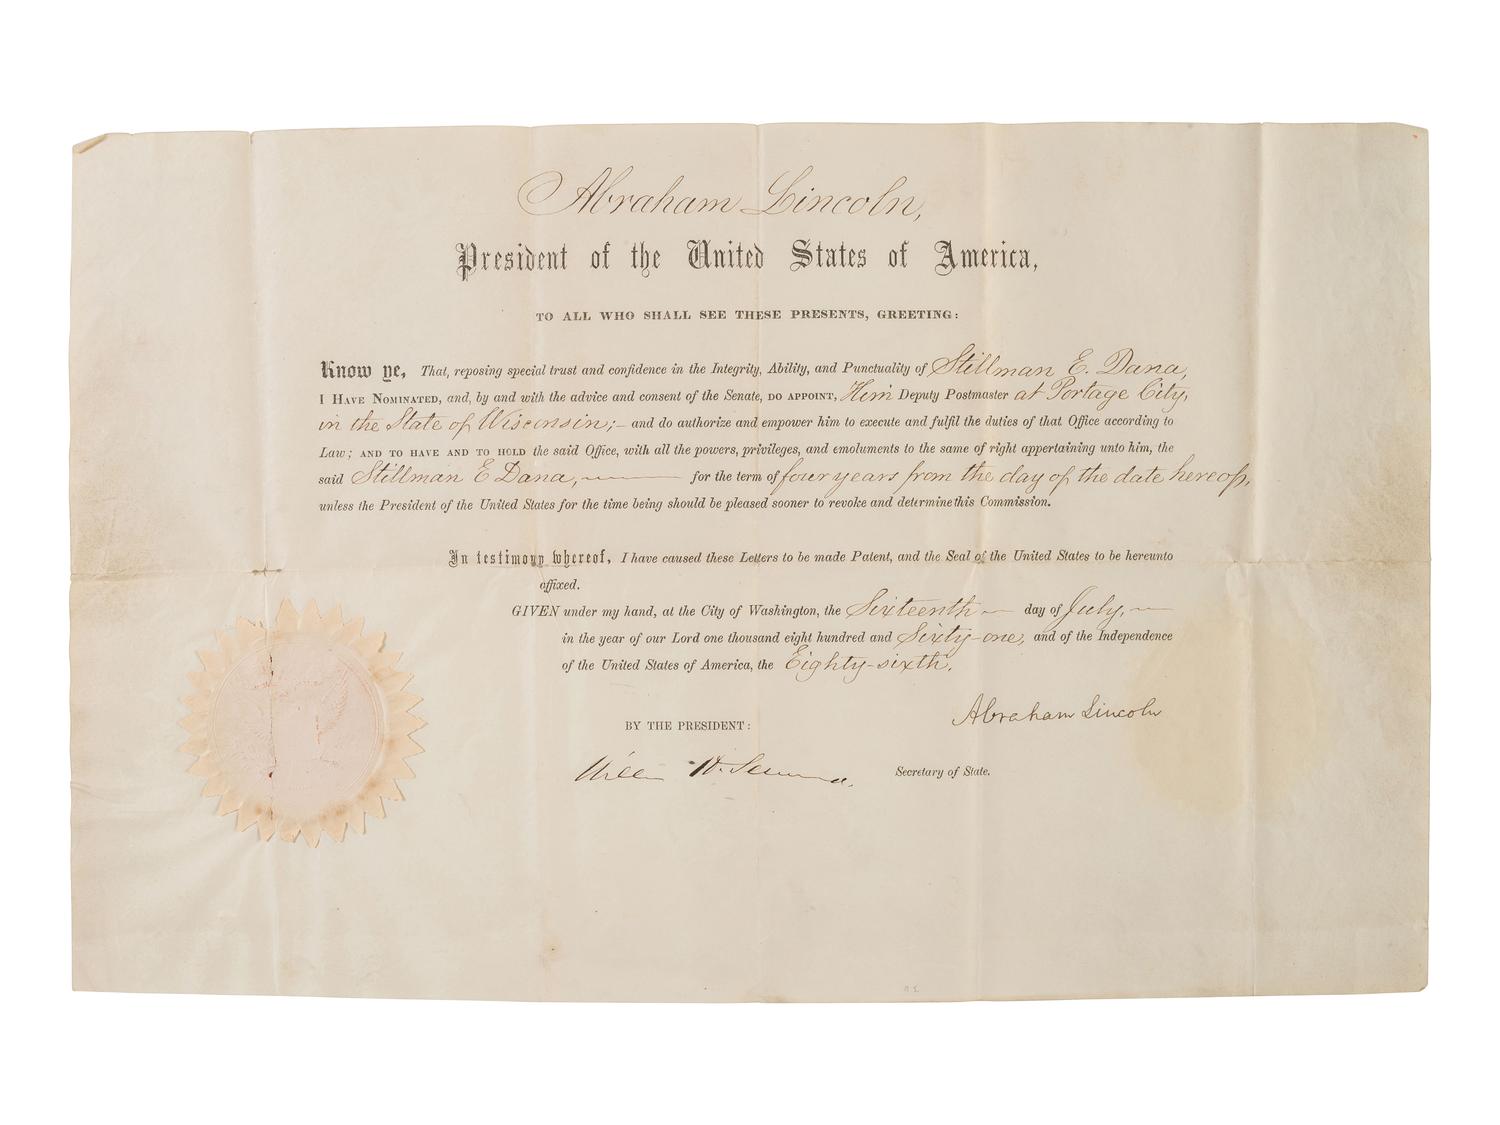 Abraham Lincoln,
President of the United States of America,
TO ALL WHO SHALL SEE THESE PRESENTS, GREETING:
Know ye, That, reposing special trust and confidence in the Integrity, Ability, and Punctuality of Stillman E. Dana,
I HAVE NOMINATED, and, by and with the advice and consent of the Senate, DO APPOINT, Him Deputy Postmaster at Portage City,
in the State of Wisconsin;– and do authorize and empower him to execute and fulfil the duties of that Office according to
Law; AND TO HAVE AND TO HOLD the said Office, with all the powers, privileges, and emoluments to the same of right appertaining unto him, the
said Stillman E Dana, — for the term of four years from the day of the date hereof,
unless the President of the United States for the time being should be pleased sooner to revoke and determine this Commission.
In testimony whereof, I have caused these Letters to be made Patent, and the Seal of the United States to be hereunto
affixed.
GIVEN under my hand, at the City of Washington, the Sixteenth — day of July, —
in the year of our Lord one thousand eight hundred and Sixty-one, and of the Independence
of the United States of America, the Eighty-sixth.
Abraham Lincoln
BY THE PRESIDENT:
William H. Seward. Secretary of State.